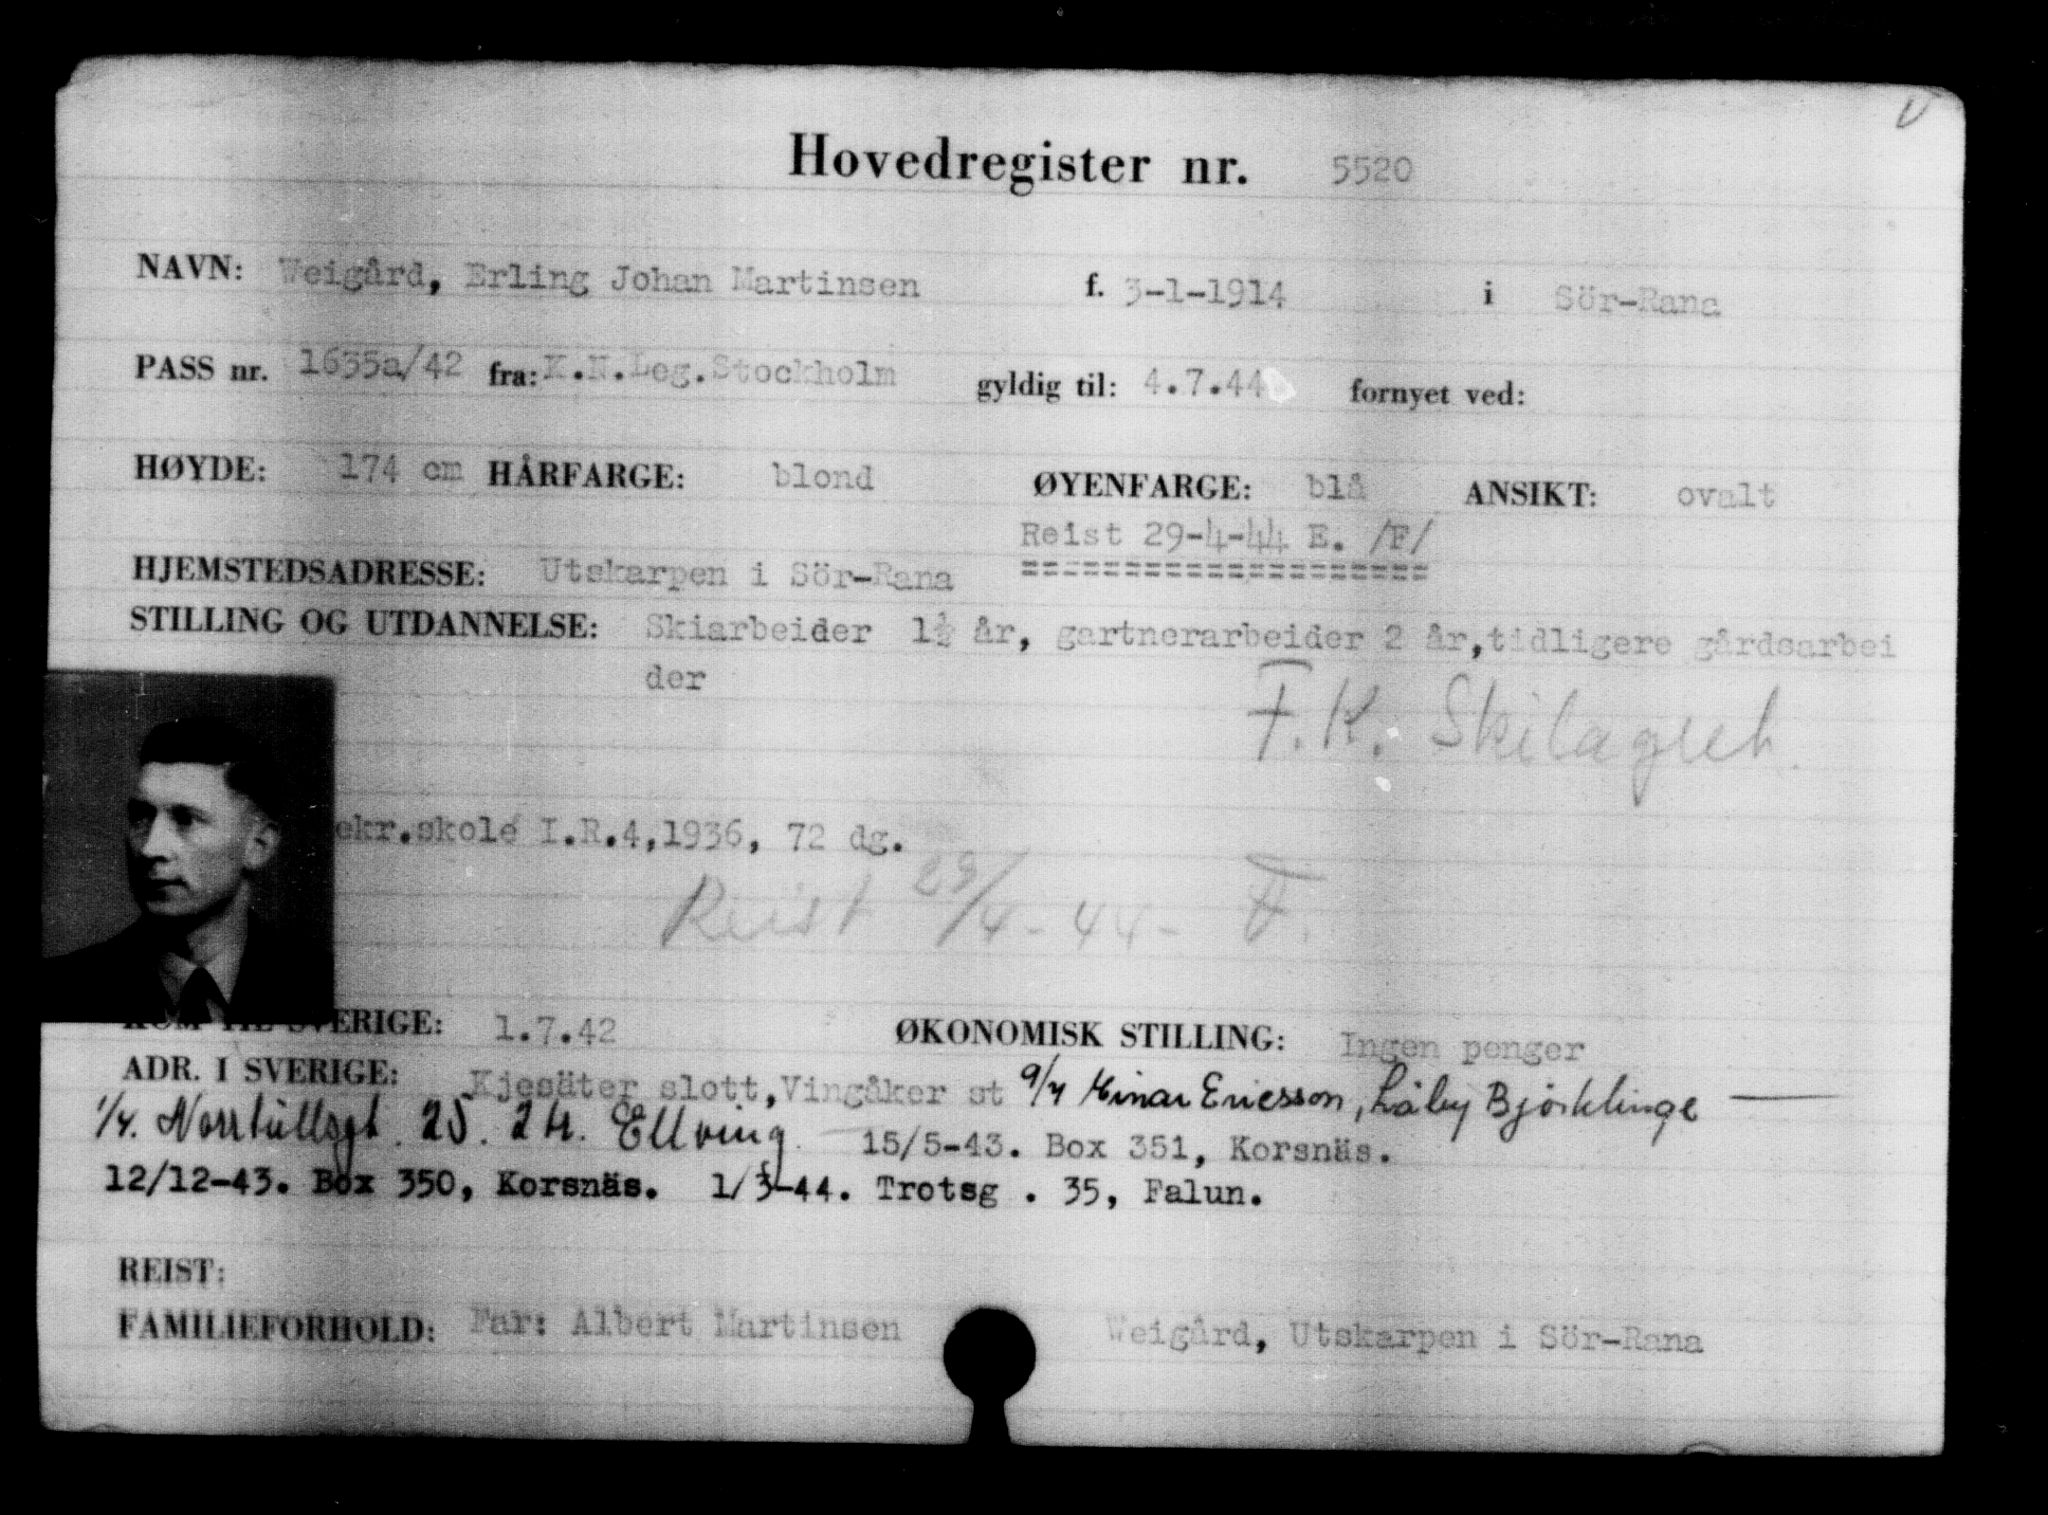 Hovedregister nr. 5520
NAVN: Weigård, Erling Johan Martinsen f. 3-1-1914 i Sör-Rana
PASS nr. 1635a/42 fra: K.N.Leg.Stockholm gyldig til: 4.7.44 fornyet ved:
HØYDE: 174 cm HÅRFARGE: blond ØYENFARGE: blå ANSIKT: ovalt
Reist 29-4-44 E. /F/
====================
HJEMSTEDSADRESSE: Utskarpen i Sör-Rana
STILLING OG UTDANNELSE: Skiarbeider 1½ år, gartnerarbeider 2 år, tidligere gårdsarbei
der
F.K. Skilaguet
ekr.skole I.R.4,1936, 72 dg.
Reist 29/4-44- F.
KOM TIL SVERIGE: 1.7.42 ØKONOMISK STILLING: Ingen penger
ADR. I SVERIGE: Kjesäter slott, Vingåker st 9/7 Einar Ericsson, Läby Björklinge
1/4. Norrtullsgt. 25. 2 tr. Ellving 15/5-43. Box 351, Korsnäs.
12/12-43. Box 350, Korsnäs. 1/3-44. Trotsg . 35, Falun.
REIST:
FAMILIEFORHOLD: Far: Albert Martinsen Weigård, Utskarpen i Sör-Rana